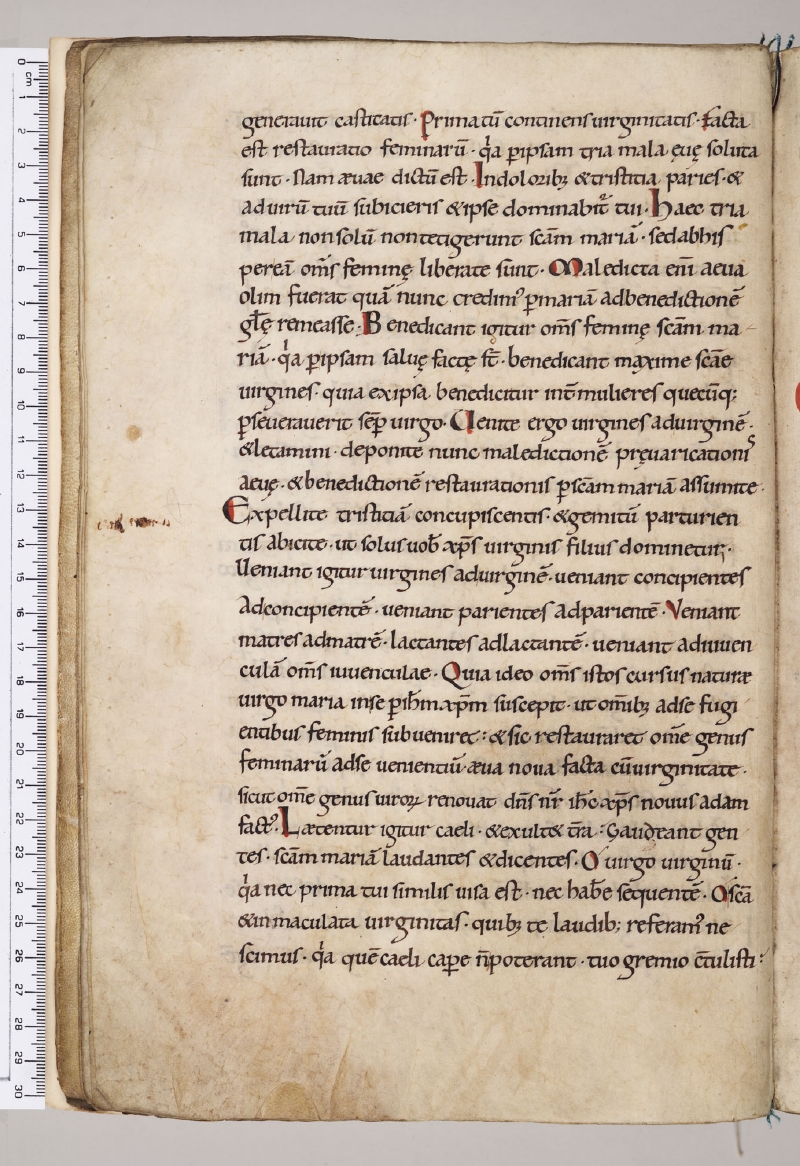 generauit castitatis· Prima tū continens uirginitatis· facta
est restauratio feminarū· qͥa ꝑ ipsam tria mala ęuę soluta
sunt· Nam æuae dictū est· In dolorib; & tristitia paries· &
ad uirū tuū subicieris & ipse dominabit͛ tui· Haec tria
mala non solū non tetigerunt scām mariā· sed ab his
per eā om̄s feminę liberate sunt· Maledicta eni̅ aeua
olim fuerat quā nunc credim᾽ ꝑ mariā ad benedictionē
gl̄ę remeasse· Benedicant igitur om̄s feminę scām ma
riā· qͥa ꝑ ipsam saluę factę st̄· benedicant maxime scāe
uirgines· quia ex ipsa benedicitur int̄ mulieres quecūq;
ꝑseuerauerit sēp uirgo· Uenite ergo uirgines ad uirginē·
& letamini· deponite nunc maledictionē pręuaricationis
aeuę· & benedictionē restaurationis ꝑ scām mariā assumite·
Expellite tristitiā concupiscentis· & gemitū parturien
tis abicite· ut solus uob̄ xp̄s uirginis filius dominetur;·
Ueniant igitur uirgines ad uirginē· ueniant concipientes
Ad concipientē· ueniant parientes Ad parientē· Veniant
matres ad matrē· lactantes ad lactantē· ueniant ad iuuen
culā om̄s iuuenculae· Quia ideo om̄s istos cursus naturæ
uirgo maria in se ꝑ ih̄m xp̄m suscepit· ut om̄ib; ad se fugi
entibus feminis subueniret: & sic restauraret om̄e genus
feminarū ad se uenientiū æua noua facta cū uirginitate·
sicut om̄e genus uiroꝝ renouat dn̄s nr̄ ih̄c xp̄s nouus adam
fact᾽· Lætentur igitur caeli· & exult& t̄ra· Gaudeant gen
tes· scām mariā laudantes & dicentes· O uirgo uirginū·
qͥa nec prima tui similis uisa est· nec hab̄e sequentē· O scā
& inmaculata uirginitas· quib; te laudib; referam᾽ ne
scimus· qͥa quē caeli caꝑe n̄ poterant· tuo gremio c̄tulisti: